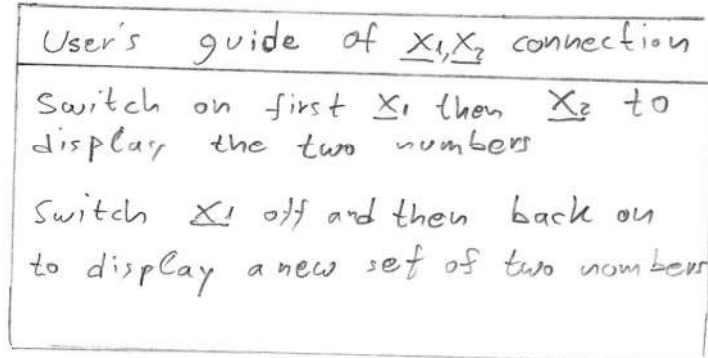 User's guide of X1,X2 connection
Switch on first X1 then X2 to
display the two numbers
Switch X1 off and then back on
to display a new set of two numbers